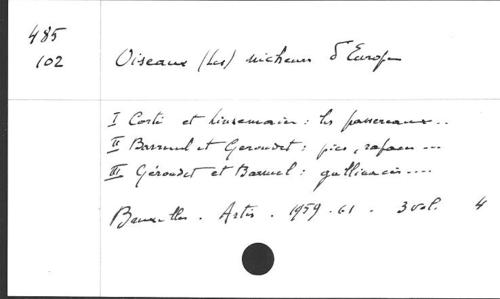 485
102
Oiseaux (Les) nicheurs d'Europe
I Corti et Linsenmair : les passereaux...
II Barruel et Geroudet : pics, rapaces ...
III Géroudet et Barruel : gallinacés....
Bruxelles. Artis. 1959-61. 3 vol. 4